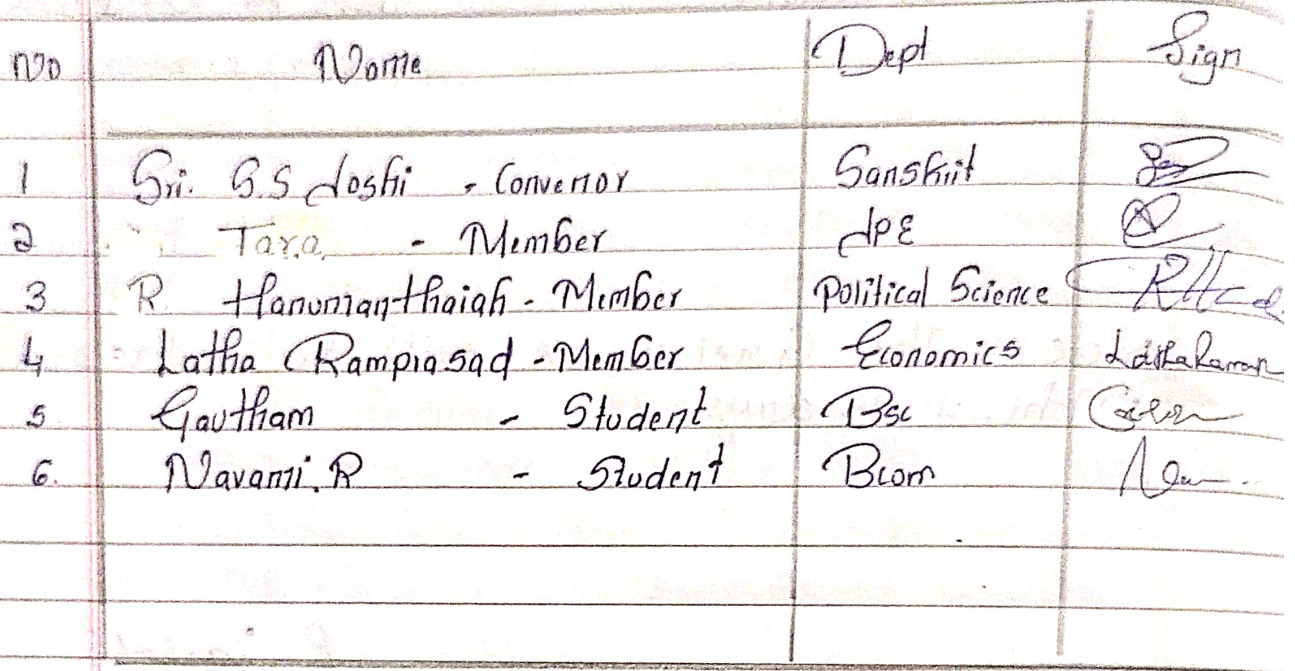 No Name Dept Sign
1 Sri. G.S Joshi - Convenor Sanskrit
2 Tara - Member JPE
3 R. Hanumanthaiah - Member Political Science
4 Latha Ramprasad - Member Economics
5 Gautham - Student Bsc
6. Navami.R - Student Bcom